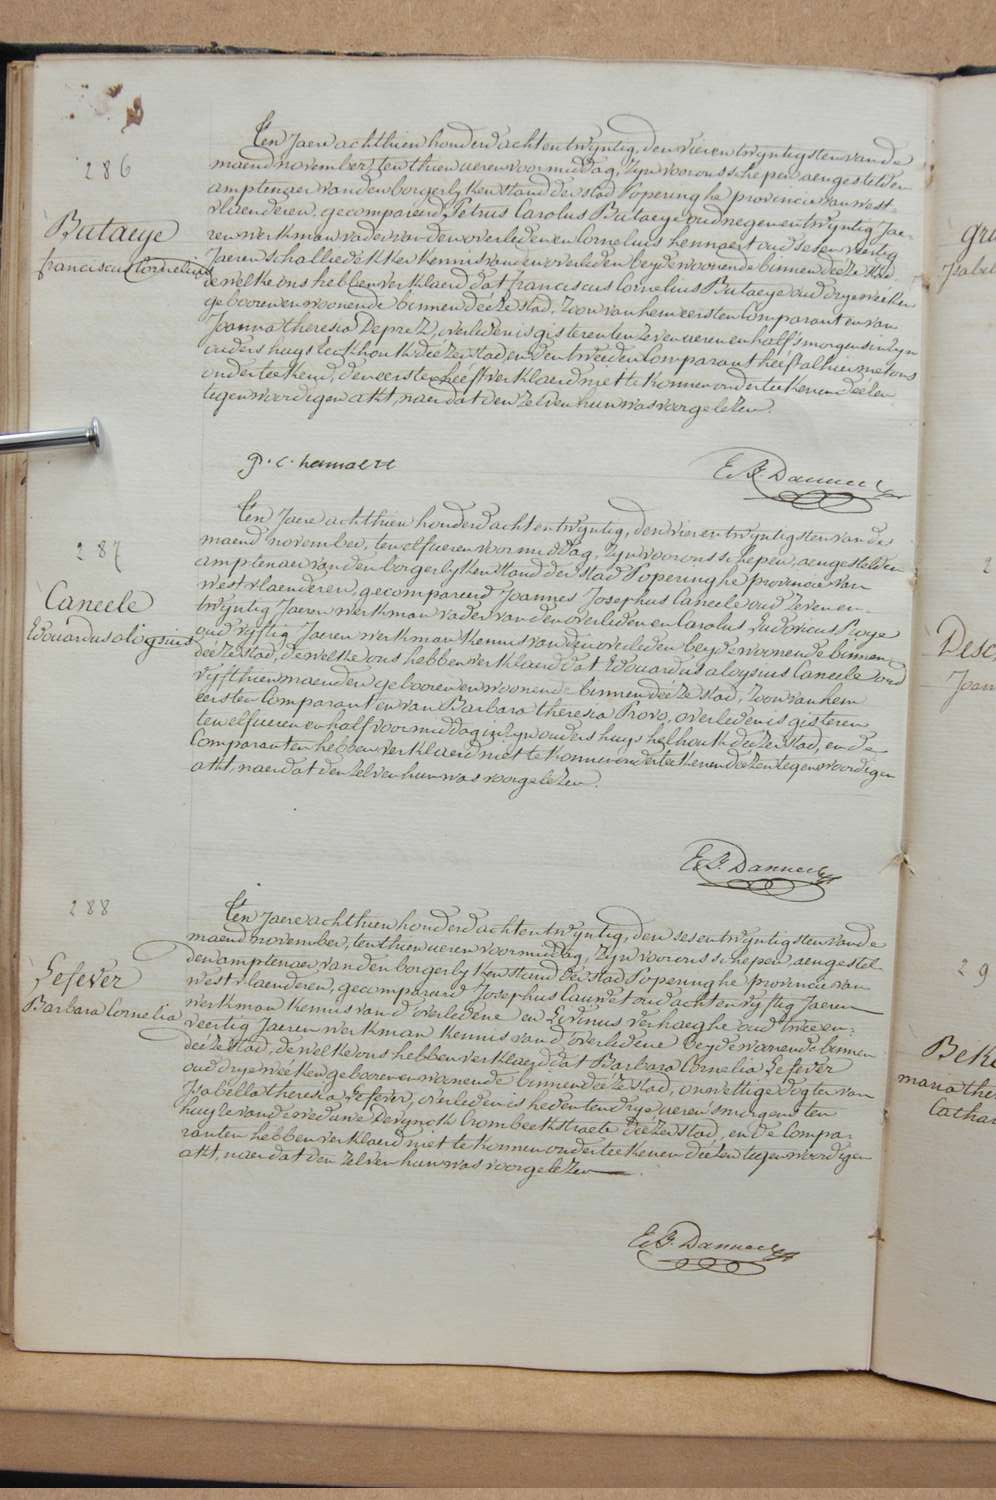 286
Butaeye
franciscus Cornelius
Ten Jaere achthien honderd acht en twyntig, den vier en twyntigsten van de
maend november, ten thien ueren voormiddag, zyn voor ons schepen, aengestelden
amptenaer van den borgerlyken stand der stad Poperinghe provincie van west-
vlaenderen, gecompareerd Petrus Carolus Butaeye oud negen en twyntig Jae-
ren werkman vader van den overledenen Cornelius hennaert oud ses en veertig
Jaeren schalliedekker kennis van den overleden beyde woonende binnen deeze stad
de welke ons hebben verklaerd dat franciscus Cornelius Butaeye oud drye weeken
gebooren en woonende binnen deeze stad, zoon van hem eersten Comparant en van
Joanna theresia Deprez, overleden is gisteren ten zeven ueren en half s'morgens in zyn
ouders huys Eeckhoutk deezer stad en den tweeden Comparant heeft alhier met ons
onderteekend, den eersten heeft verklaerd niet te konnen onderteekenen deezen
tegenwoordigen akt, naer dat den zelven hun was voorgelezen.
p. c. hennaert
E. B. Danneel
287
Caneele
Edouardus aloysius
Ten Jaere achthien honderd acht en twyntig, den vier en twyntigsten van de
maend november, ten elf ueren voormiddag, zyn voor ons schepen, aengestelden
amptenaer van den borgerlyken stand der stad Poperinghe provincie van
westvlaenderen, gecompareerd Joannes Josephus Caneele oud zeven en-
twyntig Jaeren werkman vader van den overleden en Carolus Ludovicus Proye
oud vyftig Jaeren werkman kennis van den overleden beyde woonende binnen
deeze stad, de welke ons hebben verklaerd dat Edouardus aloysius Caneele oud
vyfthien maenden geboren en woonende binnen deeze stad, zoon van hem
eersten Comparant en van Barbara theresia Provo, overleden is gisteren
ten elf ueren en half voormiddag in zyn ouders huys helhoutk deezer stad, en de
Comparanten hebben verklaerd niet te konnen onderteekenen deezen tegenwoordigen
akt, naer dat den zelven hun was voorgelezen.
E. B. Danneel
288
Lefever
Barbara Cornelia
Ten Jaere achthien honderd acht en twyntig, den ses en twyntigsten van de
maend november, ten thien ueren voormiddag, zyn voor ons schepen, aengestel-
den amptenaer van den borgerlyken stand der stad Poperinghe provincie van
westvlaenderen, gecompareerd Josephus Cauwet oud acht en vyftig Jaeren
werkman kennis van d'overledene en Livinus Verhaeghe oud twee en-
veertig Jaeren werkman kennis van d'overledene beyde woonende binnen
deeze stad, de welke ons hebben verklaerd dat Barbara Cornelia Lefever
oud drye weeken geboren en woonende binnen deeze stad, onwettige dogter van
Isabella theresia Lefever, overleden is heden ten drye ueren s'morgens ten
huyze van de weduwe Derynck Crombeekstraete deezer stad, en de Compa-
ranten hebben verklaerd niet te konnen onderteekenen deezen tegenwoordigen
akt, naer dat den zelven hun was voorgelezen
E. B. Danneel
Isabel
2
Desc
Joann
29
Beke
maria the
Cathar